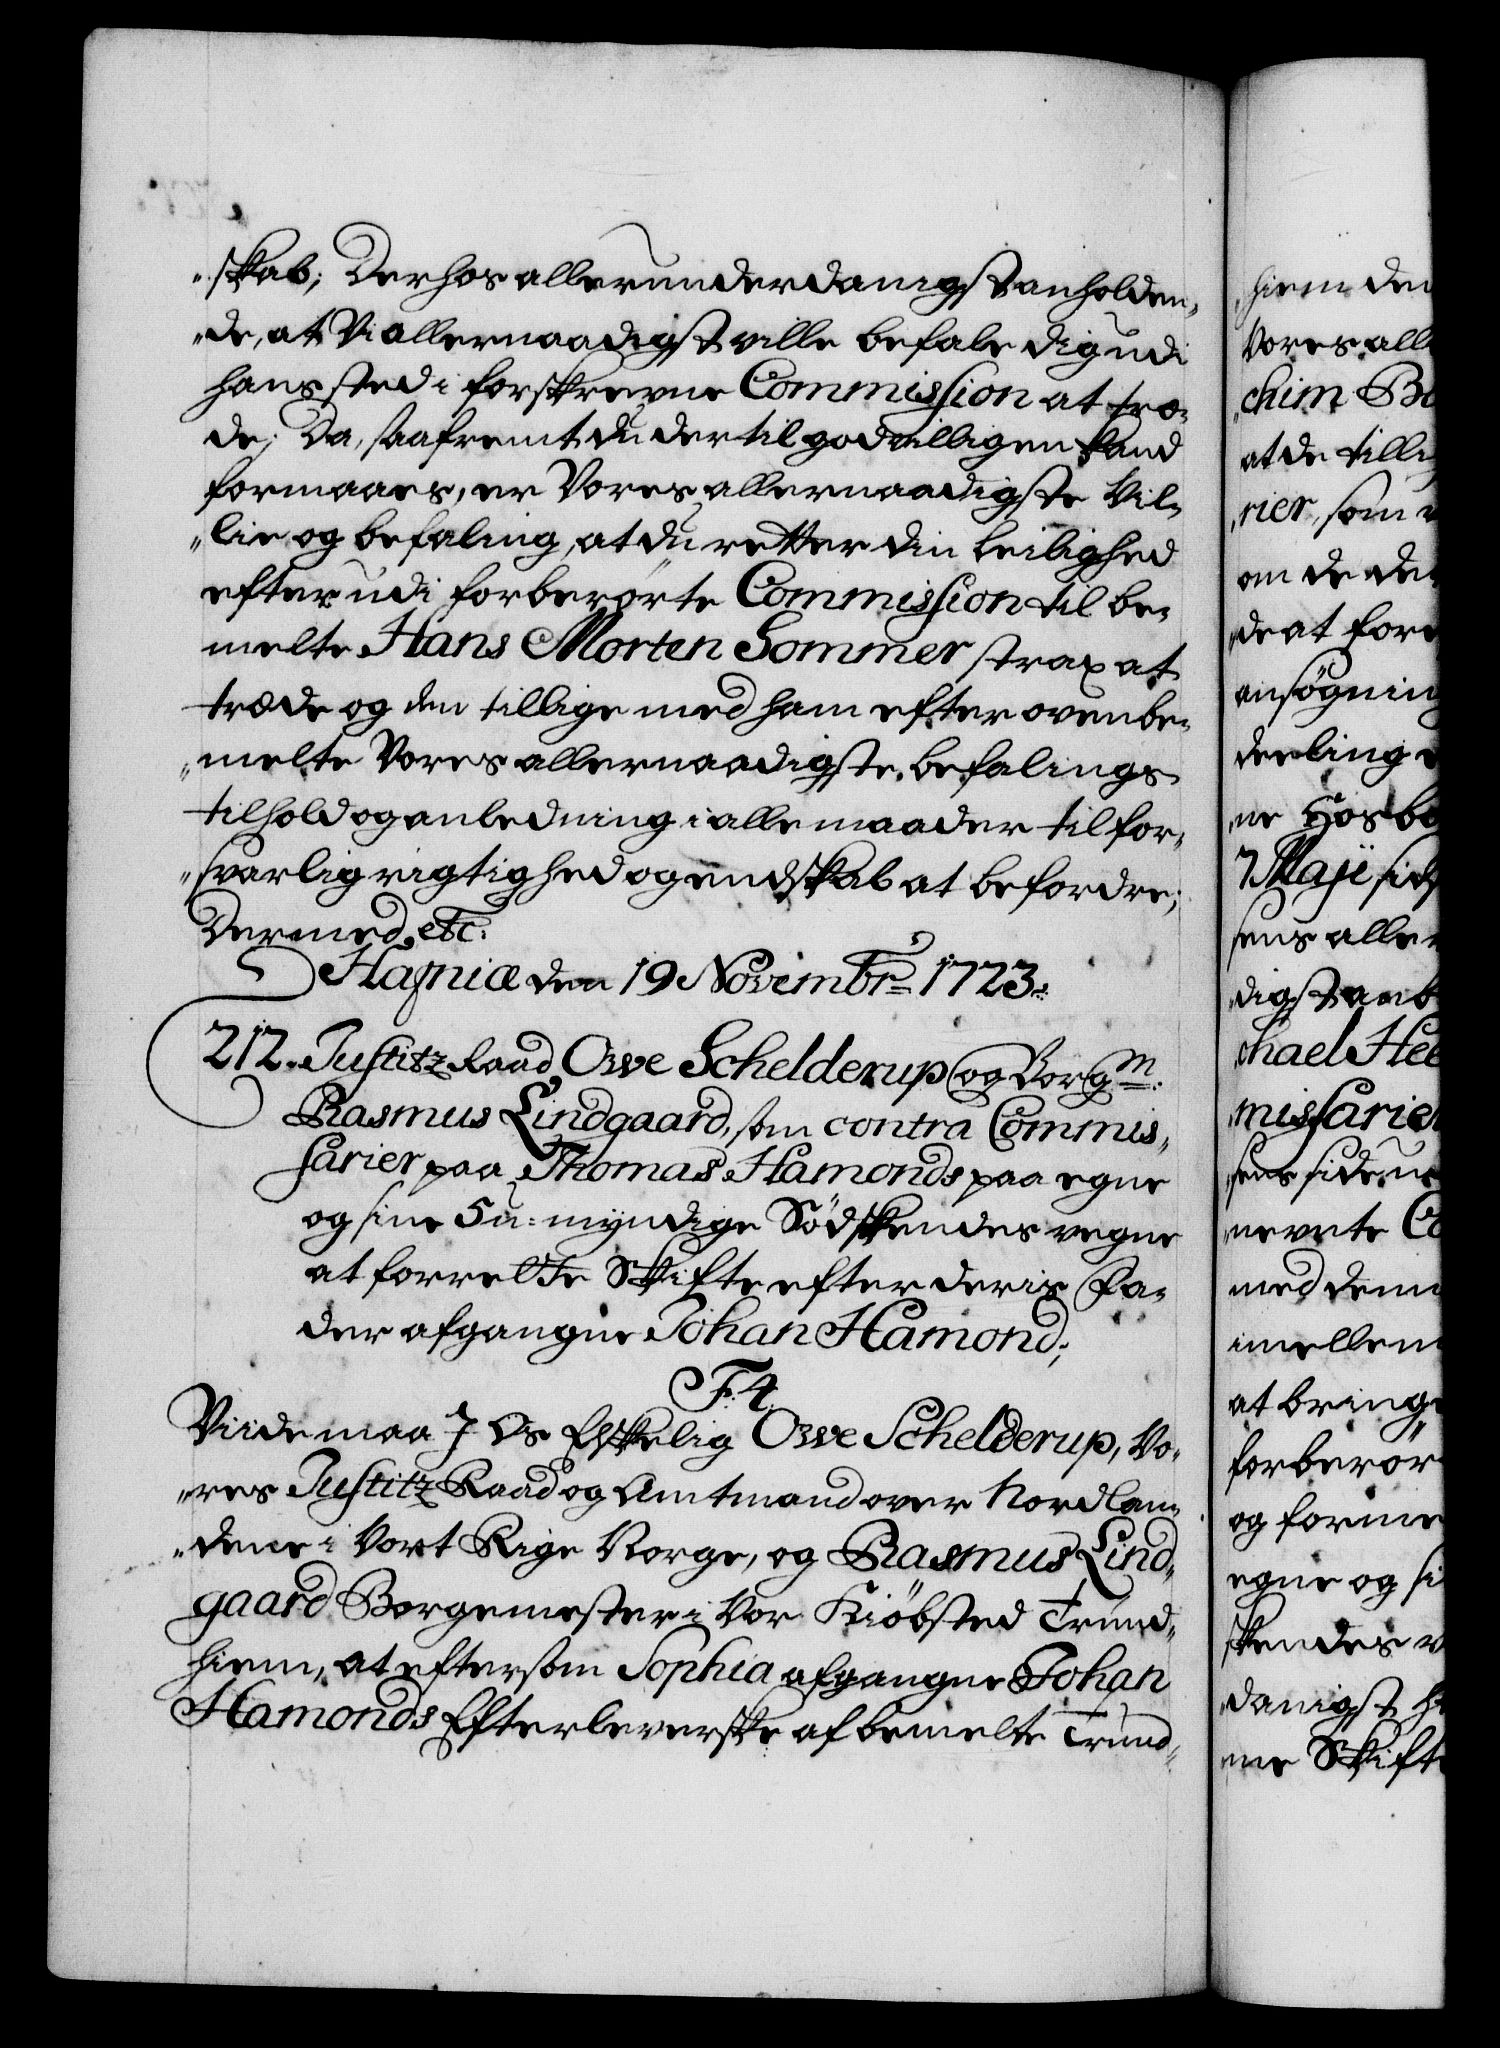 „skab; Derhos allerunderdanigst anholden„
„de, at Vi allernaadigst ville befale dig udi
hans sted i forskrevne Commission at træ„
de; Da, saafremt du dertil godvilligen kand
formaaes, er Vores allernaadigste Vil„
„lie og befaling, at du retter din leilighed
efter udi forberørte Commission til be„
melte Hans Morten Sommer strax at
træde og den tillige med ham efter ovenbe„
„melte Vores allernaadigste befalings
tilhold og anledning i alle maader til for„
„svarlig rigtighed og endskab at befordre;
Dermed etc:
Hafniæ den 19 Novembr 1723.
212. Justitz Raad Owe Schelderup og Borgm:
Rasmus Lindgaard, som contra Commis„
sarier paa Thomas Hamonds paa egne
og sine 5 u:myndige Södskendes vegne
at forrette Skifte efter deris Fa„
der afgangne Johan Hamond;
F. 4.
Vi ide maa J Os Elskelig Owe Schelderup, Vo„
„res Justitz Raad og Amtmand over Nordlan„
„dene i Vort Rige Norge, og Rasmus Lind„
gaard Borgemester i Vor Kiöbsted Trund„
hiem, at eftersom Sophia afgangne Johan
Hamonds Efterleverske af bemelte Trund„
hiem den
Vores all
chim
at de tilli
rier, som
om de de
de at for
ansögning
deeling
ne Hos
7 Maji sidst
sens aller
digst anb
chael Hee
missarier
sens side
nevnte Co
med dem
imellem
at bringe
forberör
og forme
egne og si
skendes v
danigst h
me Skifte